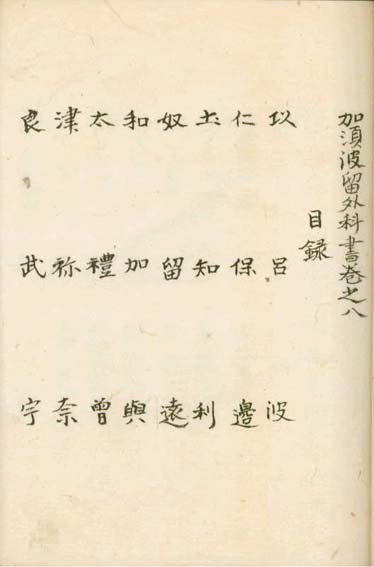 加須波留外科書巻之八
目録
以 呂 波
仁 保 邊
土 知 利
奴 留 遠
和 加 與
太 禮 曾
津 祢 奈
良 武 宇